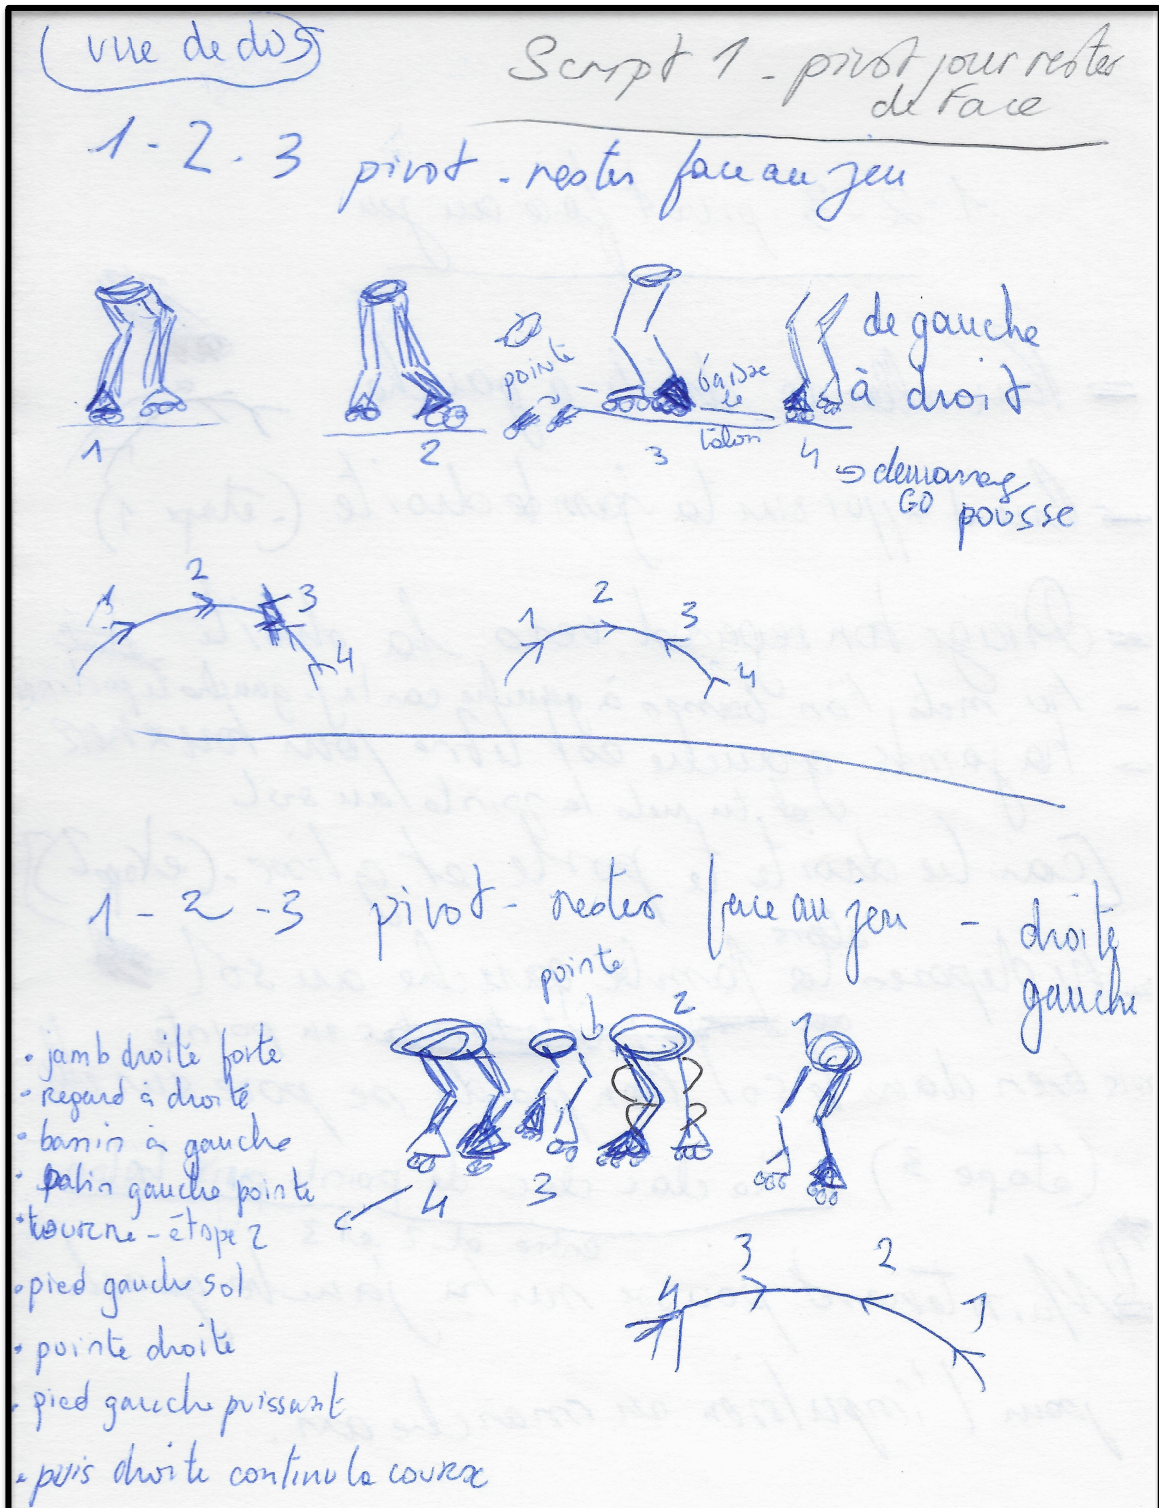 (vue de dos)
Script 1 - pivot pour rester
de Face
1 - 2 - 3 pivot - rester face au jeu
de gauche
à droit
pointe
baisse
le
talon
1
2
3
4
demarrag
GO
pousse
1
2
3
4
1
2
3
4
1 - 2 - 3 pivot - rester face au jeu - droite
gauche
pointe
2
1
4
3
• jamb droite forte
• regard à droite
• bassin à gauche
• patin gauche pointe
• tourne - étape 2
• pied gauche sol
• pointe droite
• pied gauche puissant
• puis droite continu la course
3
2
4
1